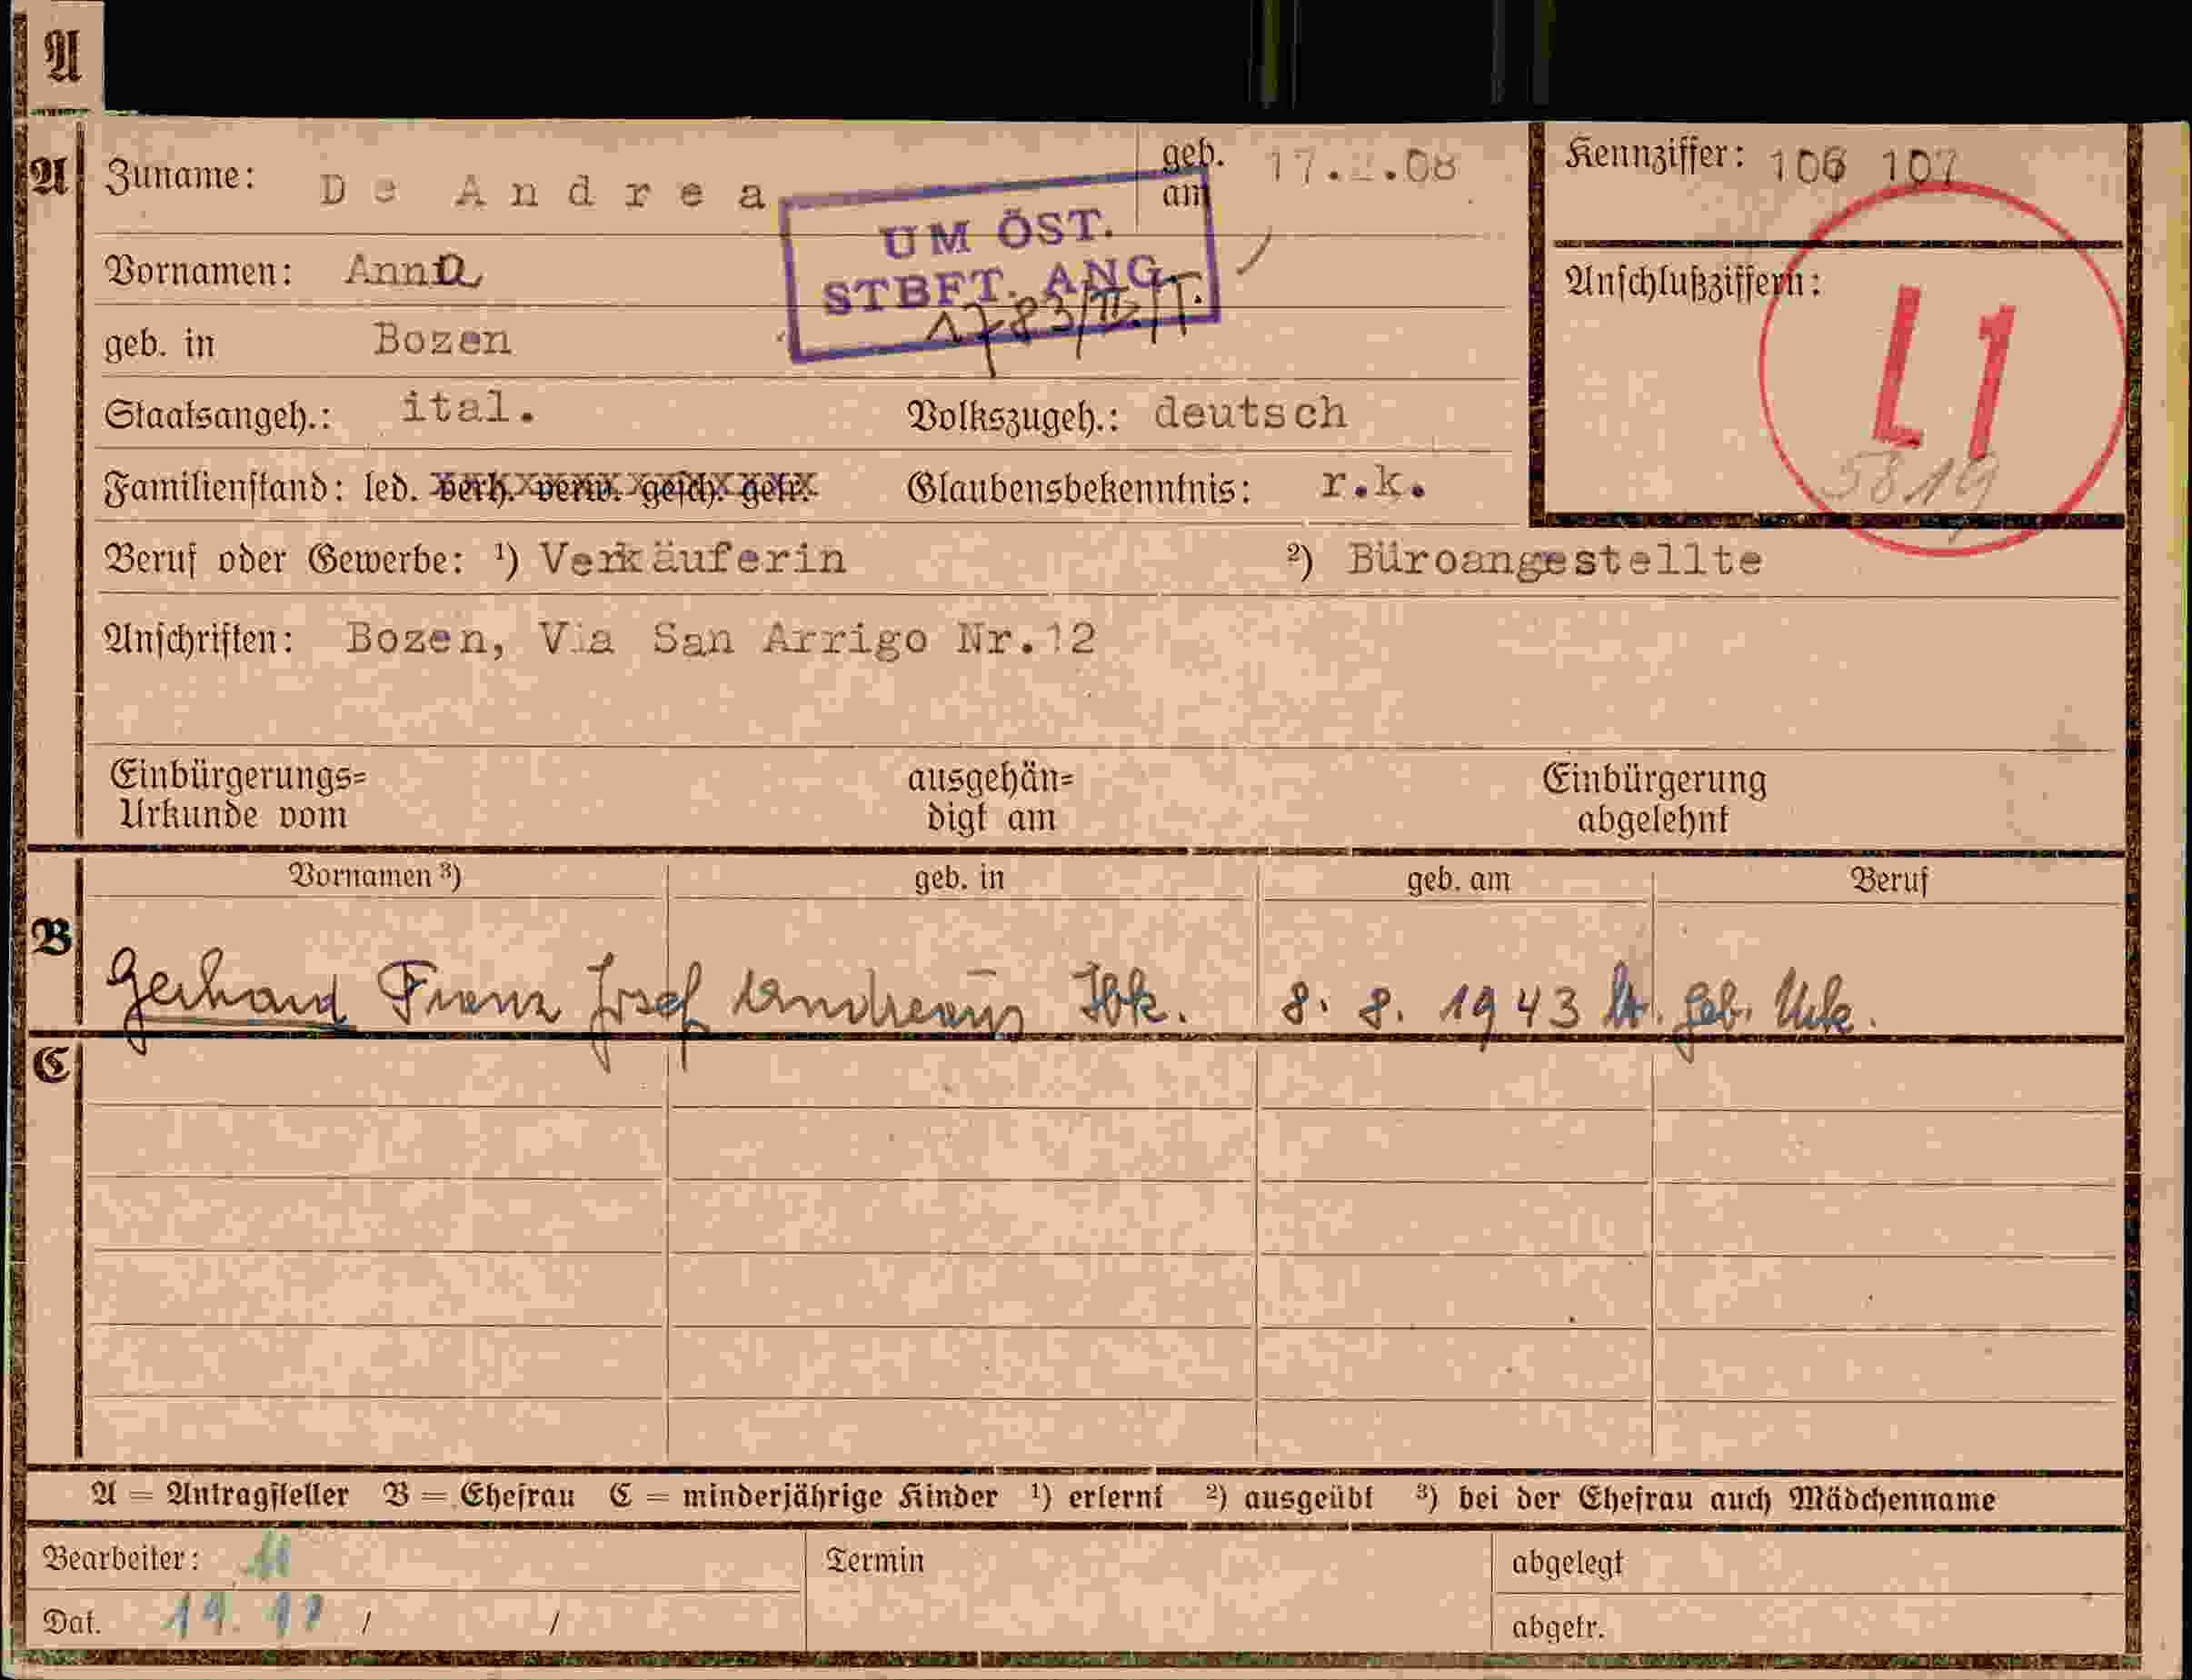 A
A Zuname: De Andrea geb. am 17. .08 Kennziffer: 106 107
UM ÖST.
STBFT. ANG.
1783/II./T.
Vornamen: Anna Anschlußziffern:
L1
geb. in Bozen
Staatsangeh.: ital. Volkszugeh.: deutsch
5819
Familienstand: led. verh. verw. gesch. getr. Glaubensbekenntnis: r.k.
Beruf oder Gewerbe: ¹) Verkäuferin ²) Büroangestellte
Anschriften: Bozen, Via San Arrigo Nr.12
Einbürgerungs= ausgehän= Einbürgerung
Urkunde vom digt am abgelehnt
Vornamen ³) geb. in geb. am Beruf
B
Gerhard Franz Josef Andreas Ibk. 8. 8. 1943 lt. Geb. Urk.
C
A = Antragsteller B = Ehefrau C = minderjährige Kinder ¹) erlernt ²) ausgeübt ³) bei der Ehefrau auch Mädchenname
Bearbeiter: Termin abgelegt
Dat. / / abgetr.